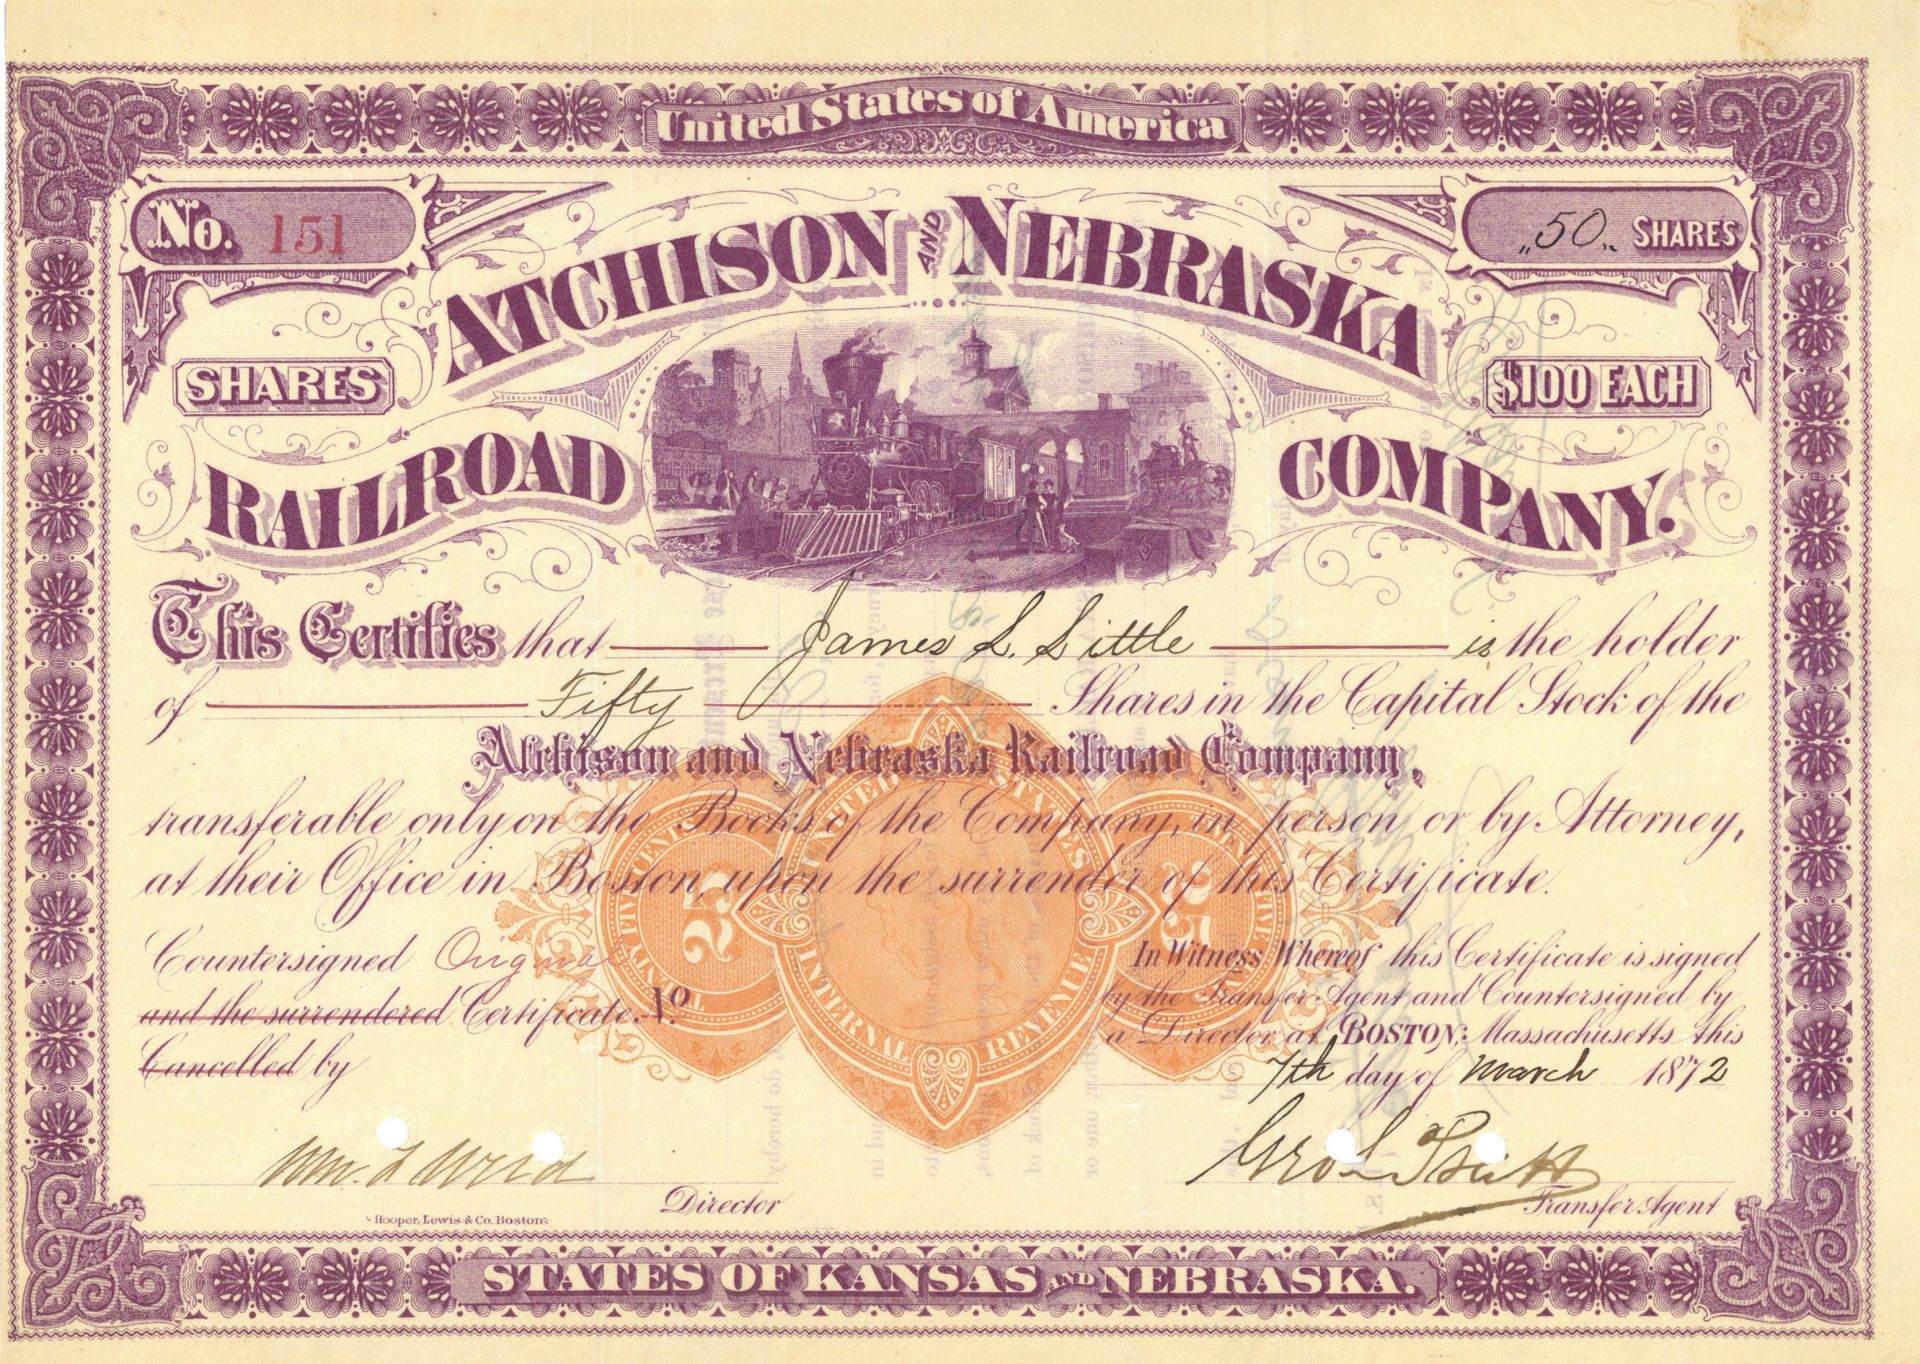 United States of America
No. 151
„50„ SHARES
ATCHISON AND NEBRASKA
SHARES
$100 EACH
RAILROAD
COMPANY.
This Certifies that James L. Little is the holder
of Fifty Shares in the Capital Stock of the
Atchison and Nebraska Railroad Company,
transferable only on the Books of the Company, in person or by Attorney,
at their Office in Boston upon the surrender of this Certificate.
UNITED STATES
INTERNAL REVENUE
TWENTY FIVE CENTS
25
25
Countersigned Original
and the surrendered Certificate No.
Cancelled by
In Witness Whereof this Certificate is signed
by the Transfer Agent and Countersigned by
a Director at BOSTON, Massachusetts this
7th day of March 1872
Director
Transfer Agent
Hooper, Lewis & Co. Boston
STATES OF KANSAS AND NEBRASKA.